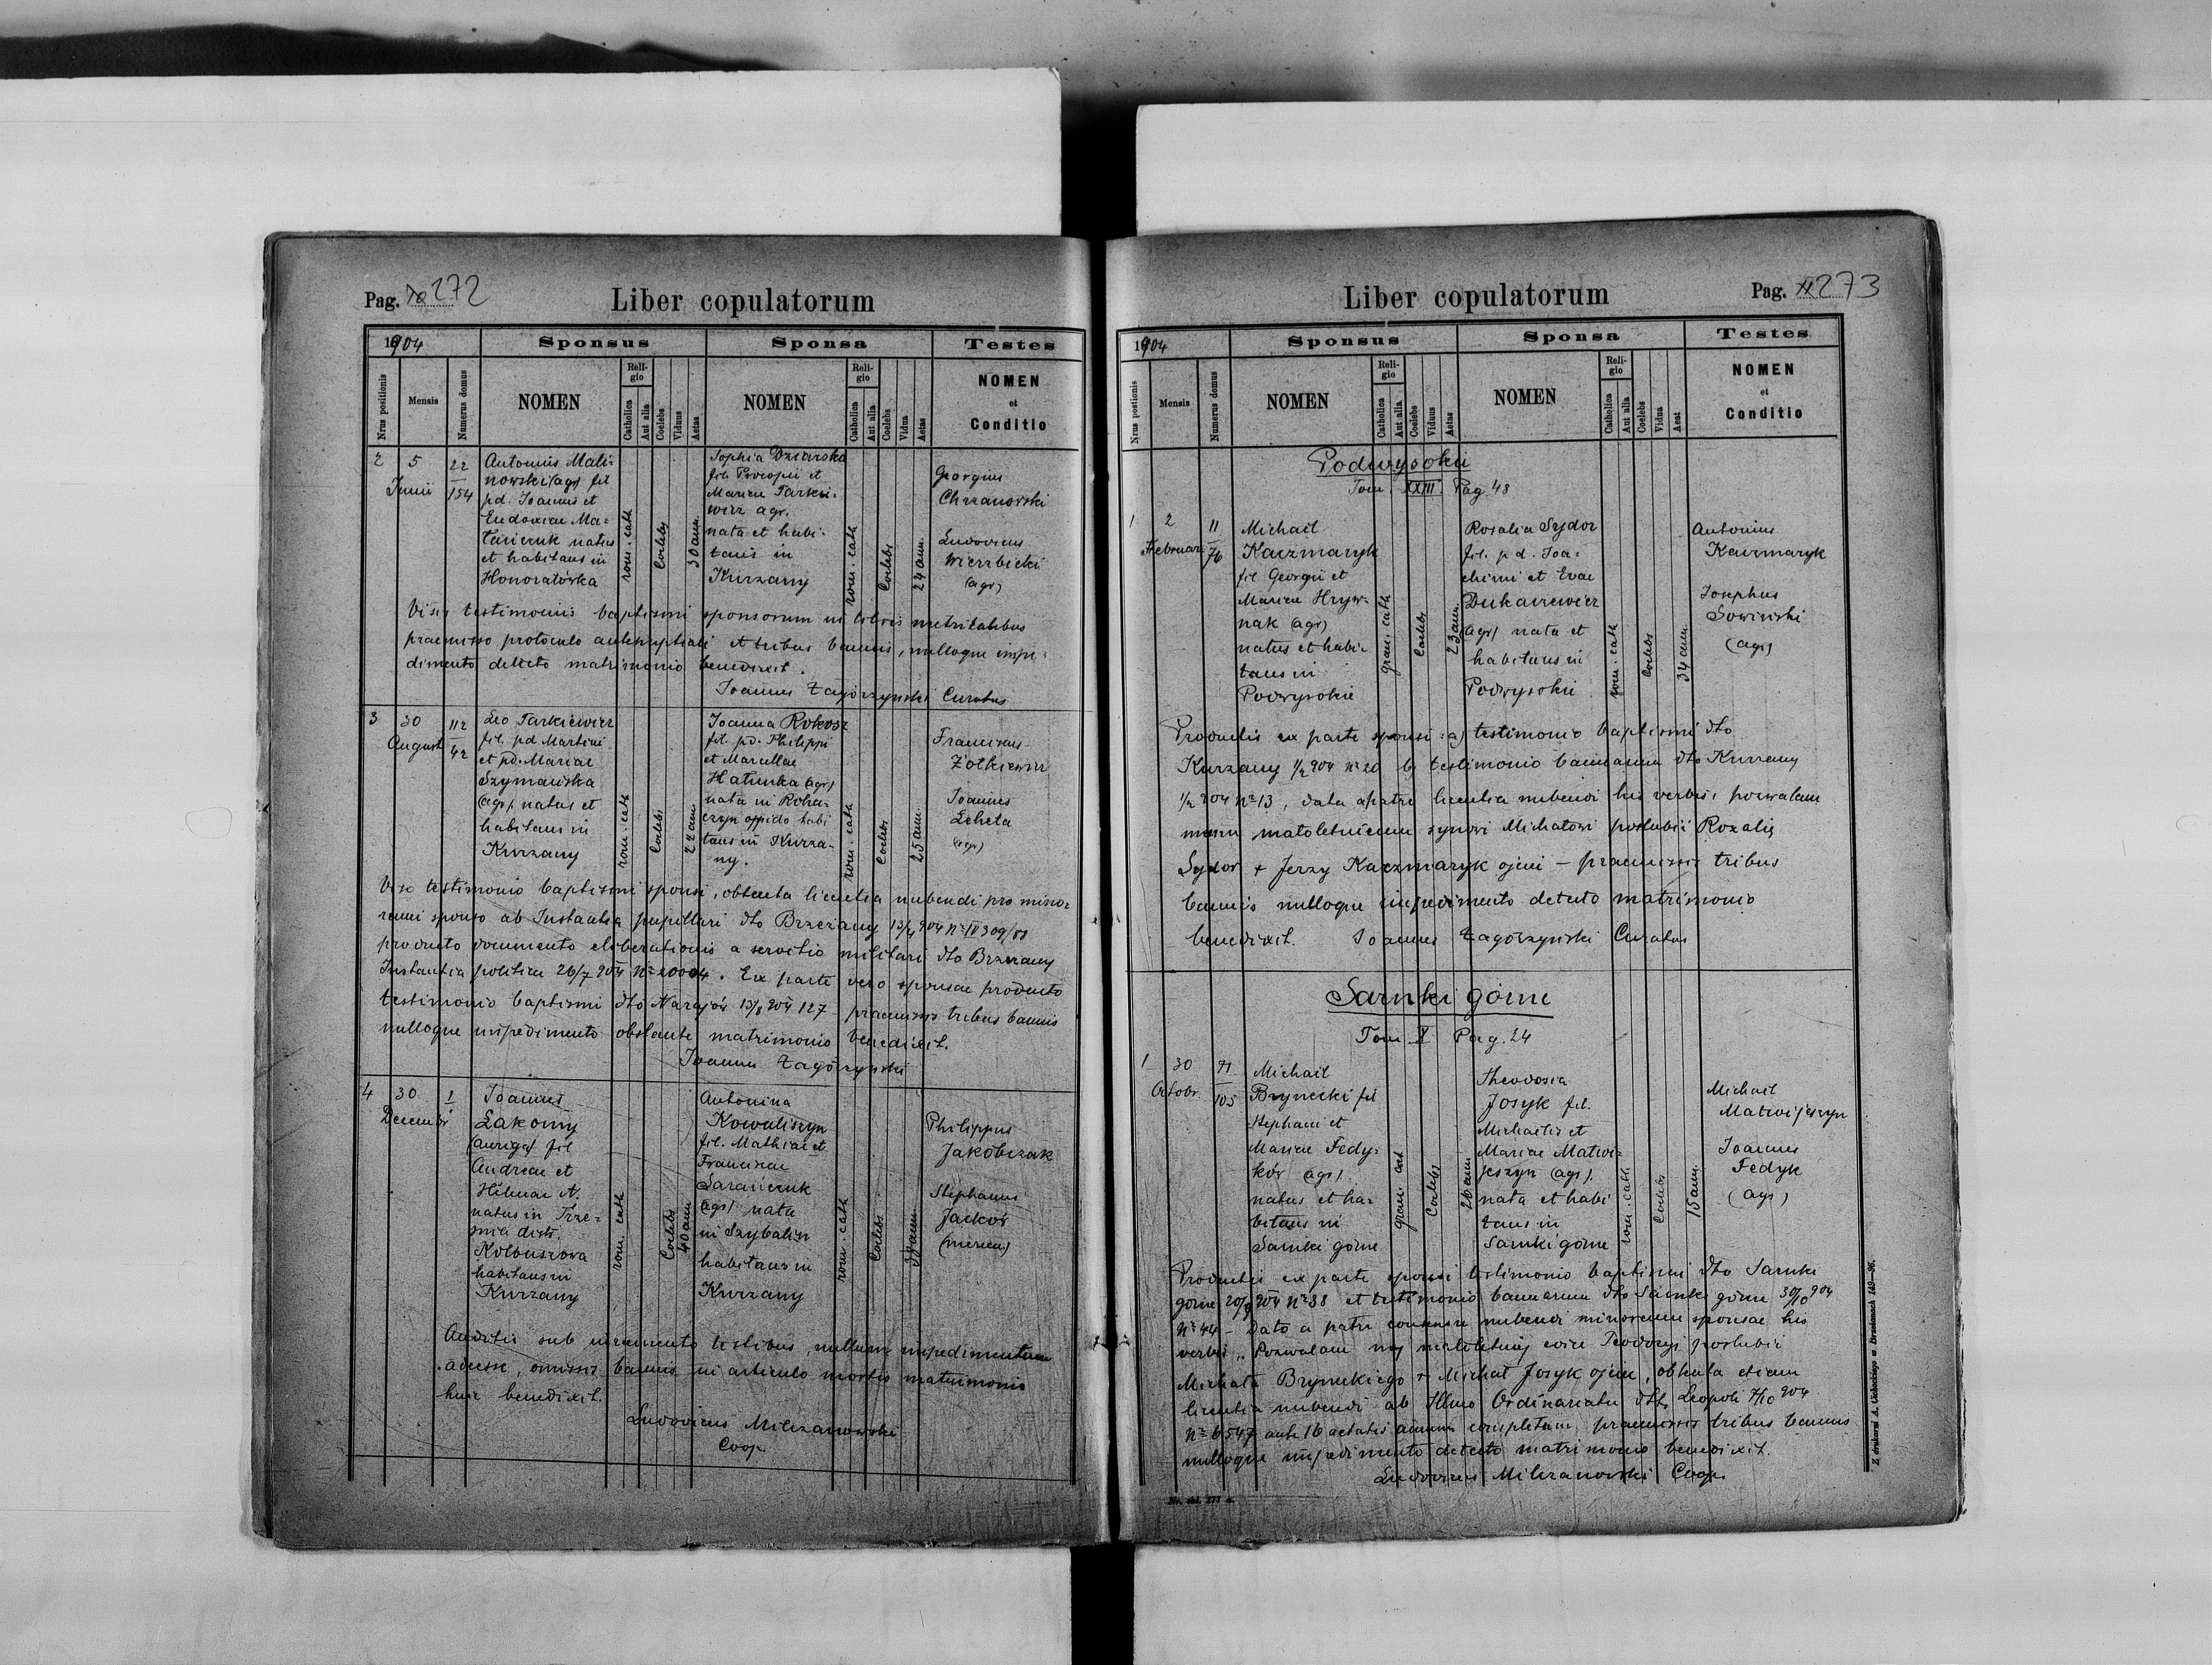 Pag. 10 272
Liber copulatorum
1904
Sponsus
Sponsa
Testes
Nrus positionis
Mensis
Numerus domus
NOMEN
Religio
Catholica
Aut alia
Coelebs
Viduus
Aetas
NOMEN
Religio
Catholica
Aut alia
Coelebs
Vidua
Aetas
NOMEN
et
Conditio
2
5
Junii
22
154
Antonius Mali-
nowski (agr) fil
pd. Joannis et
Eudoxiae Ma-
natus
et habitans in
Honoratówka
rom. cath
Coelebs
30 ann.
Sophia Dziarska
fil. Procopii et
Mariae Tarkie-
wicz agr.
nata et habi-
tans in
Kurzany
rom. cath
Coelebs
24 ann.
Georgius
Chrzanowski
Ludovicus
Wierzbicki
(agr)
Visis testimoniis baptismi sponsorum in libris metricalibus
praemisso protocolo antenuptiali et tribus bannis, nulloque impe-
dimento detecto matrimonio benedixit.
Joannes Zagórzyński Curatus
3
30
August
112
42
Leo Tarkiewicz
fil. pd Martini
et pd. Mariae
Szymańska
(agr), natus et
habitans in
Kurzany
rom. cath
Coelebs
22 ann
Joanna Rokosz
fil. pd. Philippi
et Marcellae
Hatunka (agr)
nata in Roha-
czyn oppido habi
tans in Kurza-
ny.
rom. cath
Coelebs
25 ann.
Franciscus
Żołkiewicz
Joannes
Lcheta
(agr)
Viso testimonio baptismi sponsi, obtenta licentia nubendi pro mino-
renni sponso ab Instantia pupillari dto Brzeżany 904 No IV 309/
producto documento eliberationis a servitio militari dto Brzeżany
Instantia politica 26/7 904 No 20004. Ex parte vero sponsae producto
testimonio baptismi dto Narajów 13/8 904 127 praemissis tribus bannis
nulloque impedimento obstante matrimonio benedixit.
Joannes Zagórzyński
4
30
Decembr
1
Joannes
Łakomy
(auriga) fil
Andreae et
Helenae N.
natus in Trze-
distr.
Kolbuszowa
habitans in
Kurzany
rom. cath
Coelebs
40 ann
Antonina
Kowaliszyn
fil. Mathiae et
Franciscae
Sarańczuk
(agr) nata
in Szybalin
habitans in
Kurzany
rom. cath
Coelebs
ann.
Philippus
Jakóbczak
Stephanus
Jacków
(mercen.)
Auditis sub iuramento testibus, nullum impedimentum
adesse, omissis bannis in articulo mortis matrimonio
huic benedixit.
Ludovicus Milczanowski
Coop.
Liber copulatorum
Pag. 11 273
1904
Sponsus
Sponsa
Testes
Nrus postionis
Mensis
Numerus domus
NOMEN
Religio
Catholica
Aut alia
Coelebs
Viduus
Aetas
NOMEN
Religio
Catholica
Aut alia
Coelebs
Vidua
Aeat
NOMEN
et
Conditio
Podwysokie
Tom. XXIII. Pag. 48
1
2
Februar
11
76
Michael
Kaczmaryk
fil Georgii et
Mariae Hryw-
nak (agr)
natus et habi-
tans in
Podwysokie
graec. cath
Coelebs
23 ann.
Rosalia Sydor
fil. pd. Joa-
chimi et Evae
Dukasiewicz
(agr) nata et
habitans in
Podwysokie
rom. cath
Coelebs
34 ann.
Antonius
Kaczmaryk
Josephus
Sowiński
(agr)
Productis ex parte sponsi: a) testimonio baptismi dto
Kurzany 1/2 904 No 20 b) testimonio bannorum dto Kurzany
1/2 904 No 13, data a patre licentia nubendi his verbis: pozwalam
memu małoletniemu synowi Michałowi poślubić Rozalię
Sydor + Jerzy Kaczmaryk ojciec – praemissis tribus
bannis nulloque impedimento detecto matrimonio
benedixit. Joannes Zagórzyński Curatus
Sarnki górne
Tom X Pag. 24
1
30
Octobr.
71
105
Michael
Brynecki fil
Stephani et
Mariae Fedy-
ków (agr).
natus et ha-
bitans in
Sarnki górne
graec. cat
Coelebs
26 ann
Theodosia
Josyk fil.
Michaelis et
Mariae Matwi-
jeszyn (agr).
nata et habi
tans in
Sarnki górne
rom. cath
Coelebs
15 ann.
Michael
Matwijeszyn
Joannes
Fedyk
(agr)
Productis ex parte sponsi testimonio baptismi dto Sarnki
górne 20/9 904 No 38 et testimonio bannorum dto Sarnki górne 30/10 904
No 44 – Dato a patre consensu nubendi minorenni sponsae his
verbis „Pozwalam mej małoletniej córce Teodozyi poślubić
Michała Bryneckiego + Michał Josyk ojciec, obtenta etiam
licentia nubendi ab Illmo Ordinariatu dto Leopoli 7/10 904
No 6547 ante 16 aetatis annum completum, praemissis tribus bannis
nulloque impedimento detecto matrimonio benedixit.
Ludovicus Milczanowski Coop.
Z drukarni A. Uchockiego w Brzeżanach 149—96.